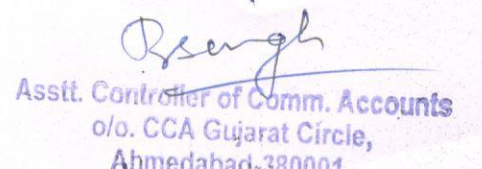 Rsengh
Asstt. Controller of Comm. Accounts
o/o. CCA Gujarat Circle,
Ahmedabad-380001